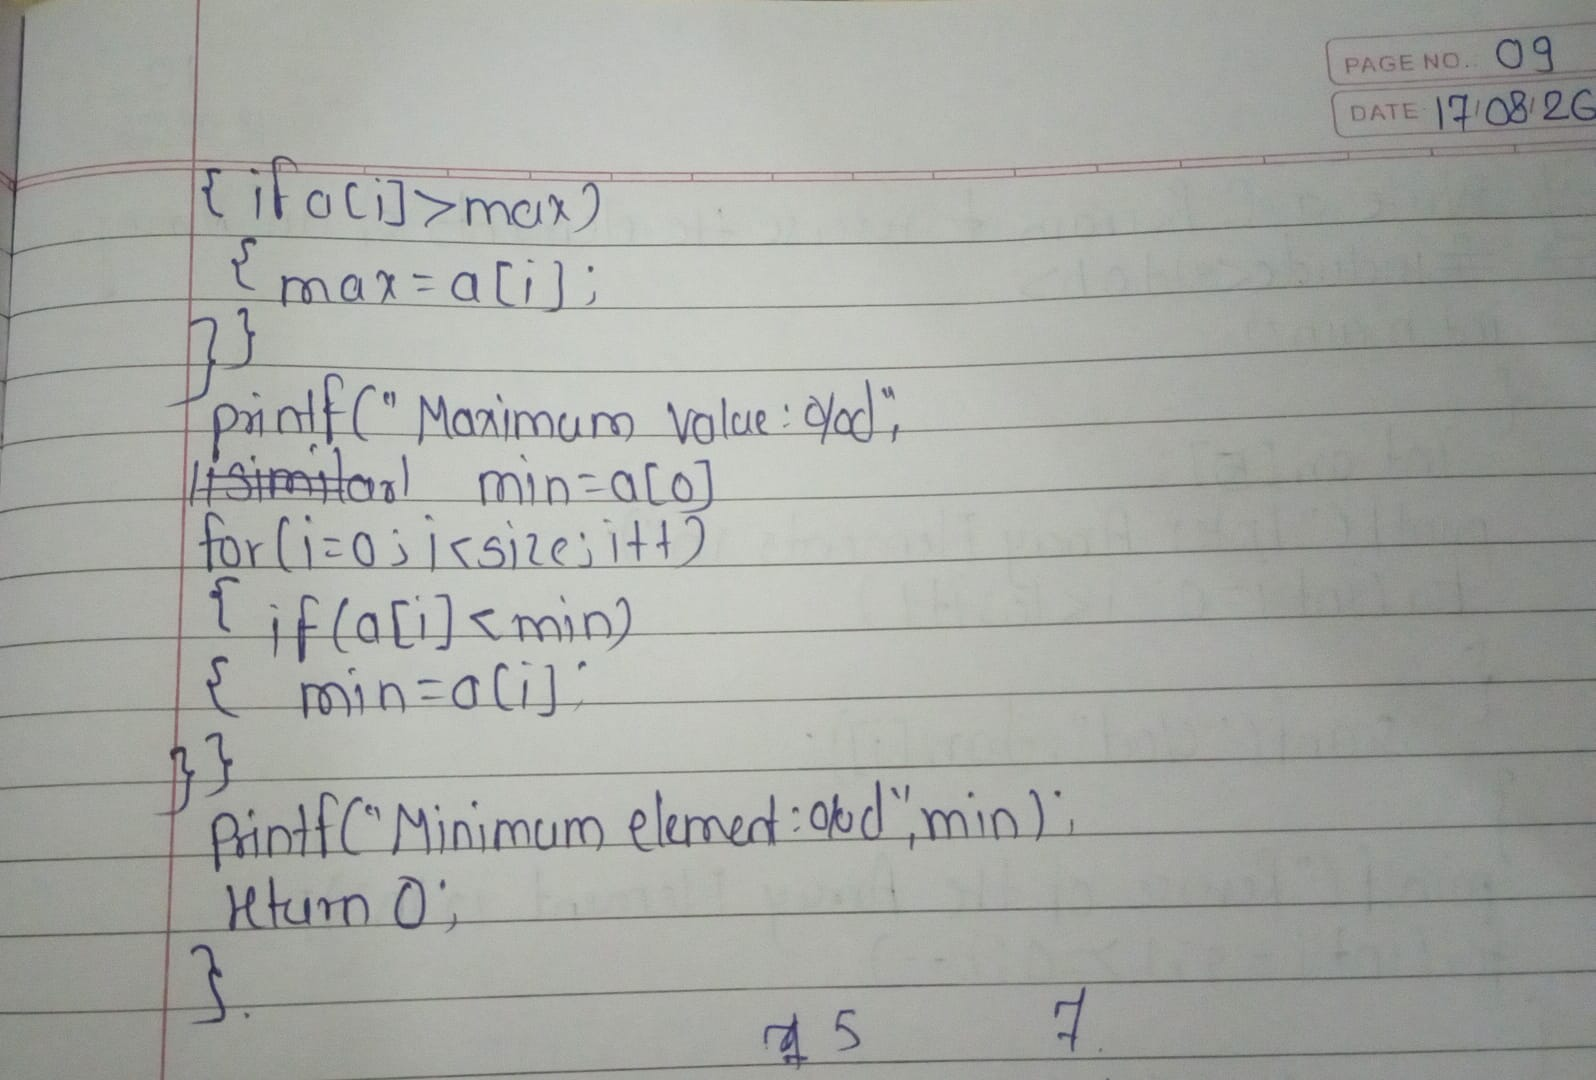 PAGE NO.. 09
DATE 17/08/26
{ if a[i]>max)
{ max=a[i];
}}
printf("Maximum value:%d",
min=a[0]
for(i=0;i<size;i++)
{ if(a[i]<min)
{ min=a[i];
}}
printf("Minimum element:%d",min);
return 0;
}.
5 7.